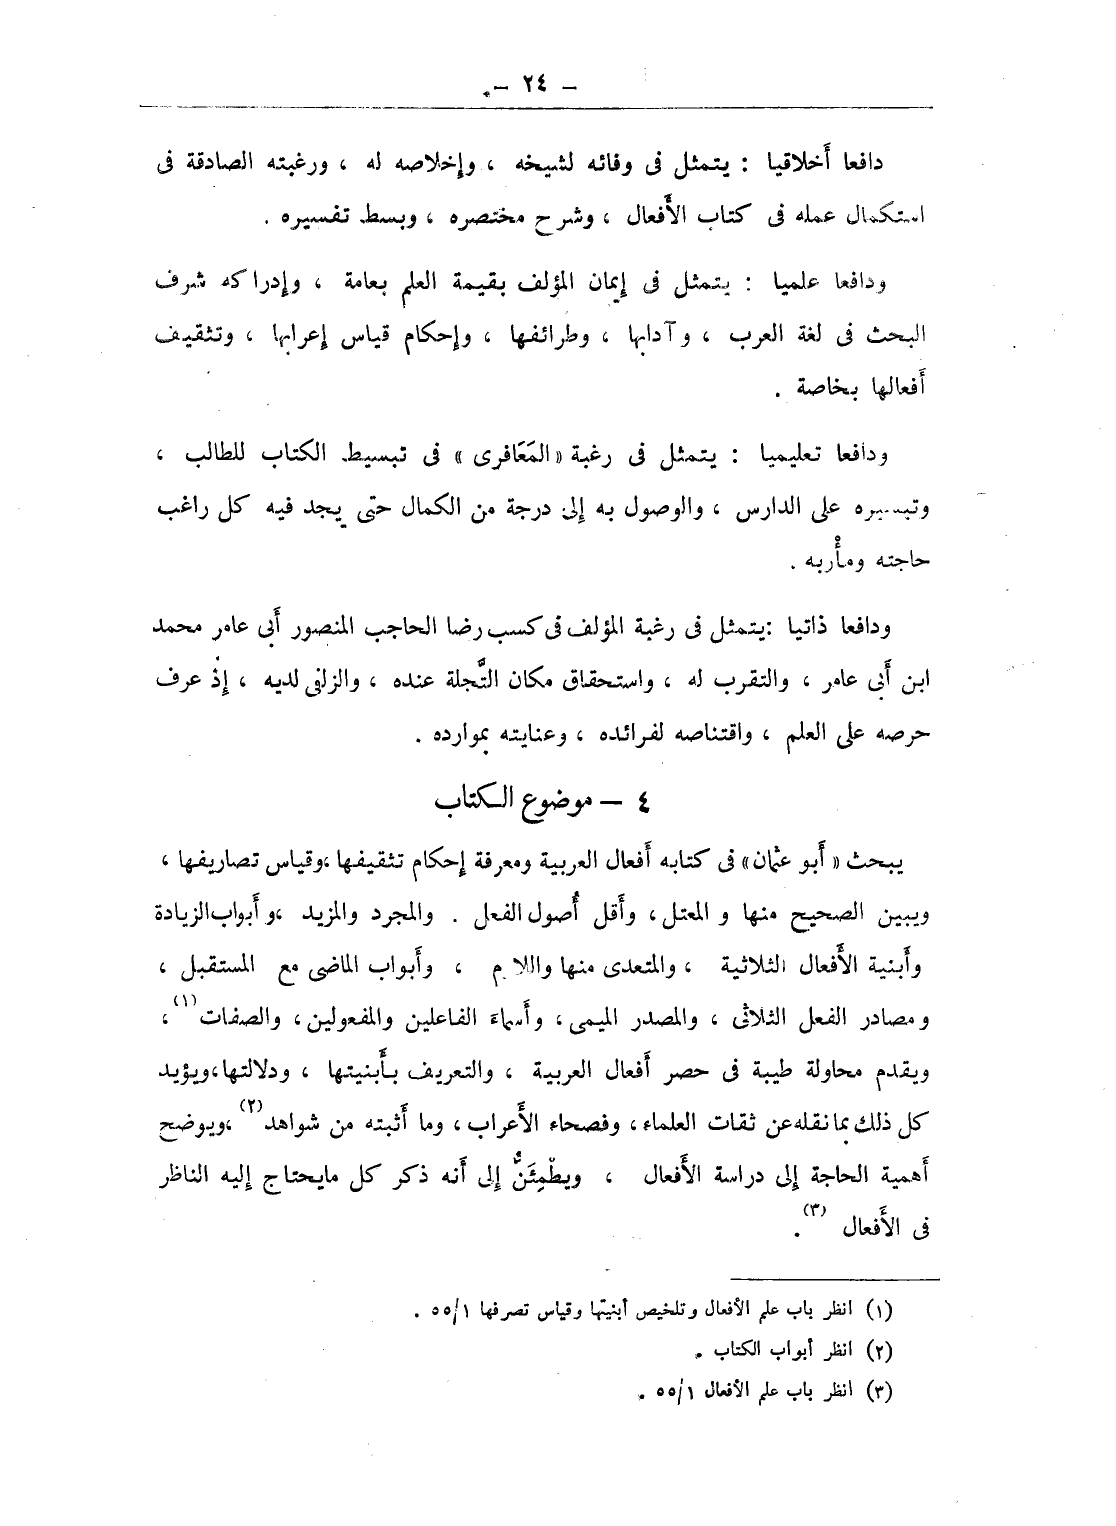 – ٢٤ –
دافعا أخلاقيا : يتمثل فى وفائه لشيخه ، وإخلاصه له ، ورغبته الصادقة فى
استكمال عمله فى كتاب الأفعال ، وشرح مختصره ، وبسط تفسيره .
ودافعا علميا : يتمثل فى إيمان المؤلف بقيمة العلم بعامة ، وإدراكه شرف
البحث فى لغة العرب ، وآدابها ، وطرائفها ، وإحكام قياس إعرابها ، وتثقيف
أفعالها بخاصة .
ودافعا تعليميا : يتمثل فى رغبة «المَعَافرى» فى تبسيط الكتاب للطالب ،
وتيسيره على الدارس ، والوصول به إلى درجة من الكمال حتى يجد فيه كل راغب
حاجته ومأْربه .
ودافعا ذاتيا :يتمثل فى رغبة المؤلف فى كسب رضا الحاجب المنصور أبى عامر محمد
ابن أبى عامر ، والتقرب له ، واستحقاق مكان التَّجلة عنده ، والزلفى لديه ، إذْ عرف
حرصه على العلم ، واقتناصه لفرائده ، وعنايته بموارده .
٤ – موضوع الكتاب
يبحث «أبو عثمان» فى كتابه أفعال العربية ومعرفة إحكام تثقيفها ،وقياس تصاريفها ،
ويبين الصحيح منها و المعتل ، وأقل أُصول الفعل . والمجرد والمزيد ،وأبواب الزيادة
وأبنية الأفعال الثلاثية ، والمتعدى منها واللازم ، وأبواب الماضى مع المستقبل ،
ومصادر الفعل الثلاثى ، والمصدر الميمى ، وأسماءَ الفاعلين والمفعولين ، والصفات (١) ،
ويقدم محاولة طيبة فى حصر أفعال العربية ، والتعريف بأبنيتها ، ودلالتها ،ويؤيد
كل ذلك بما نقله عن ثقات العلماء ، وفصحاء الأعراب ، وما أثبته من شواهد (٢) ،ويوضح
أهمية الحاجة إلى دراسة الأفعال ، ويطْمِئَنُّ إلى أنه ذكر كل مايحتاج إليه الناظر
فى الأفعال (٣) .
(١) انظر باب علم الأفعال وتلخيص أبنيتها وقياس تصرفها ٥٥/١ .
(٢) انظر أبواب الكتاب .
(٣) انظر باب علم الأفعال ٥٥/١ .